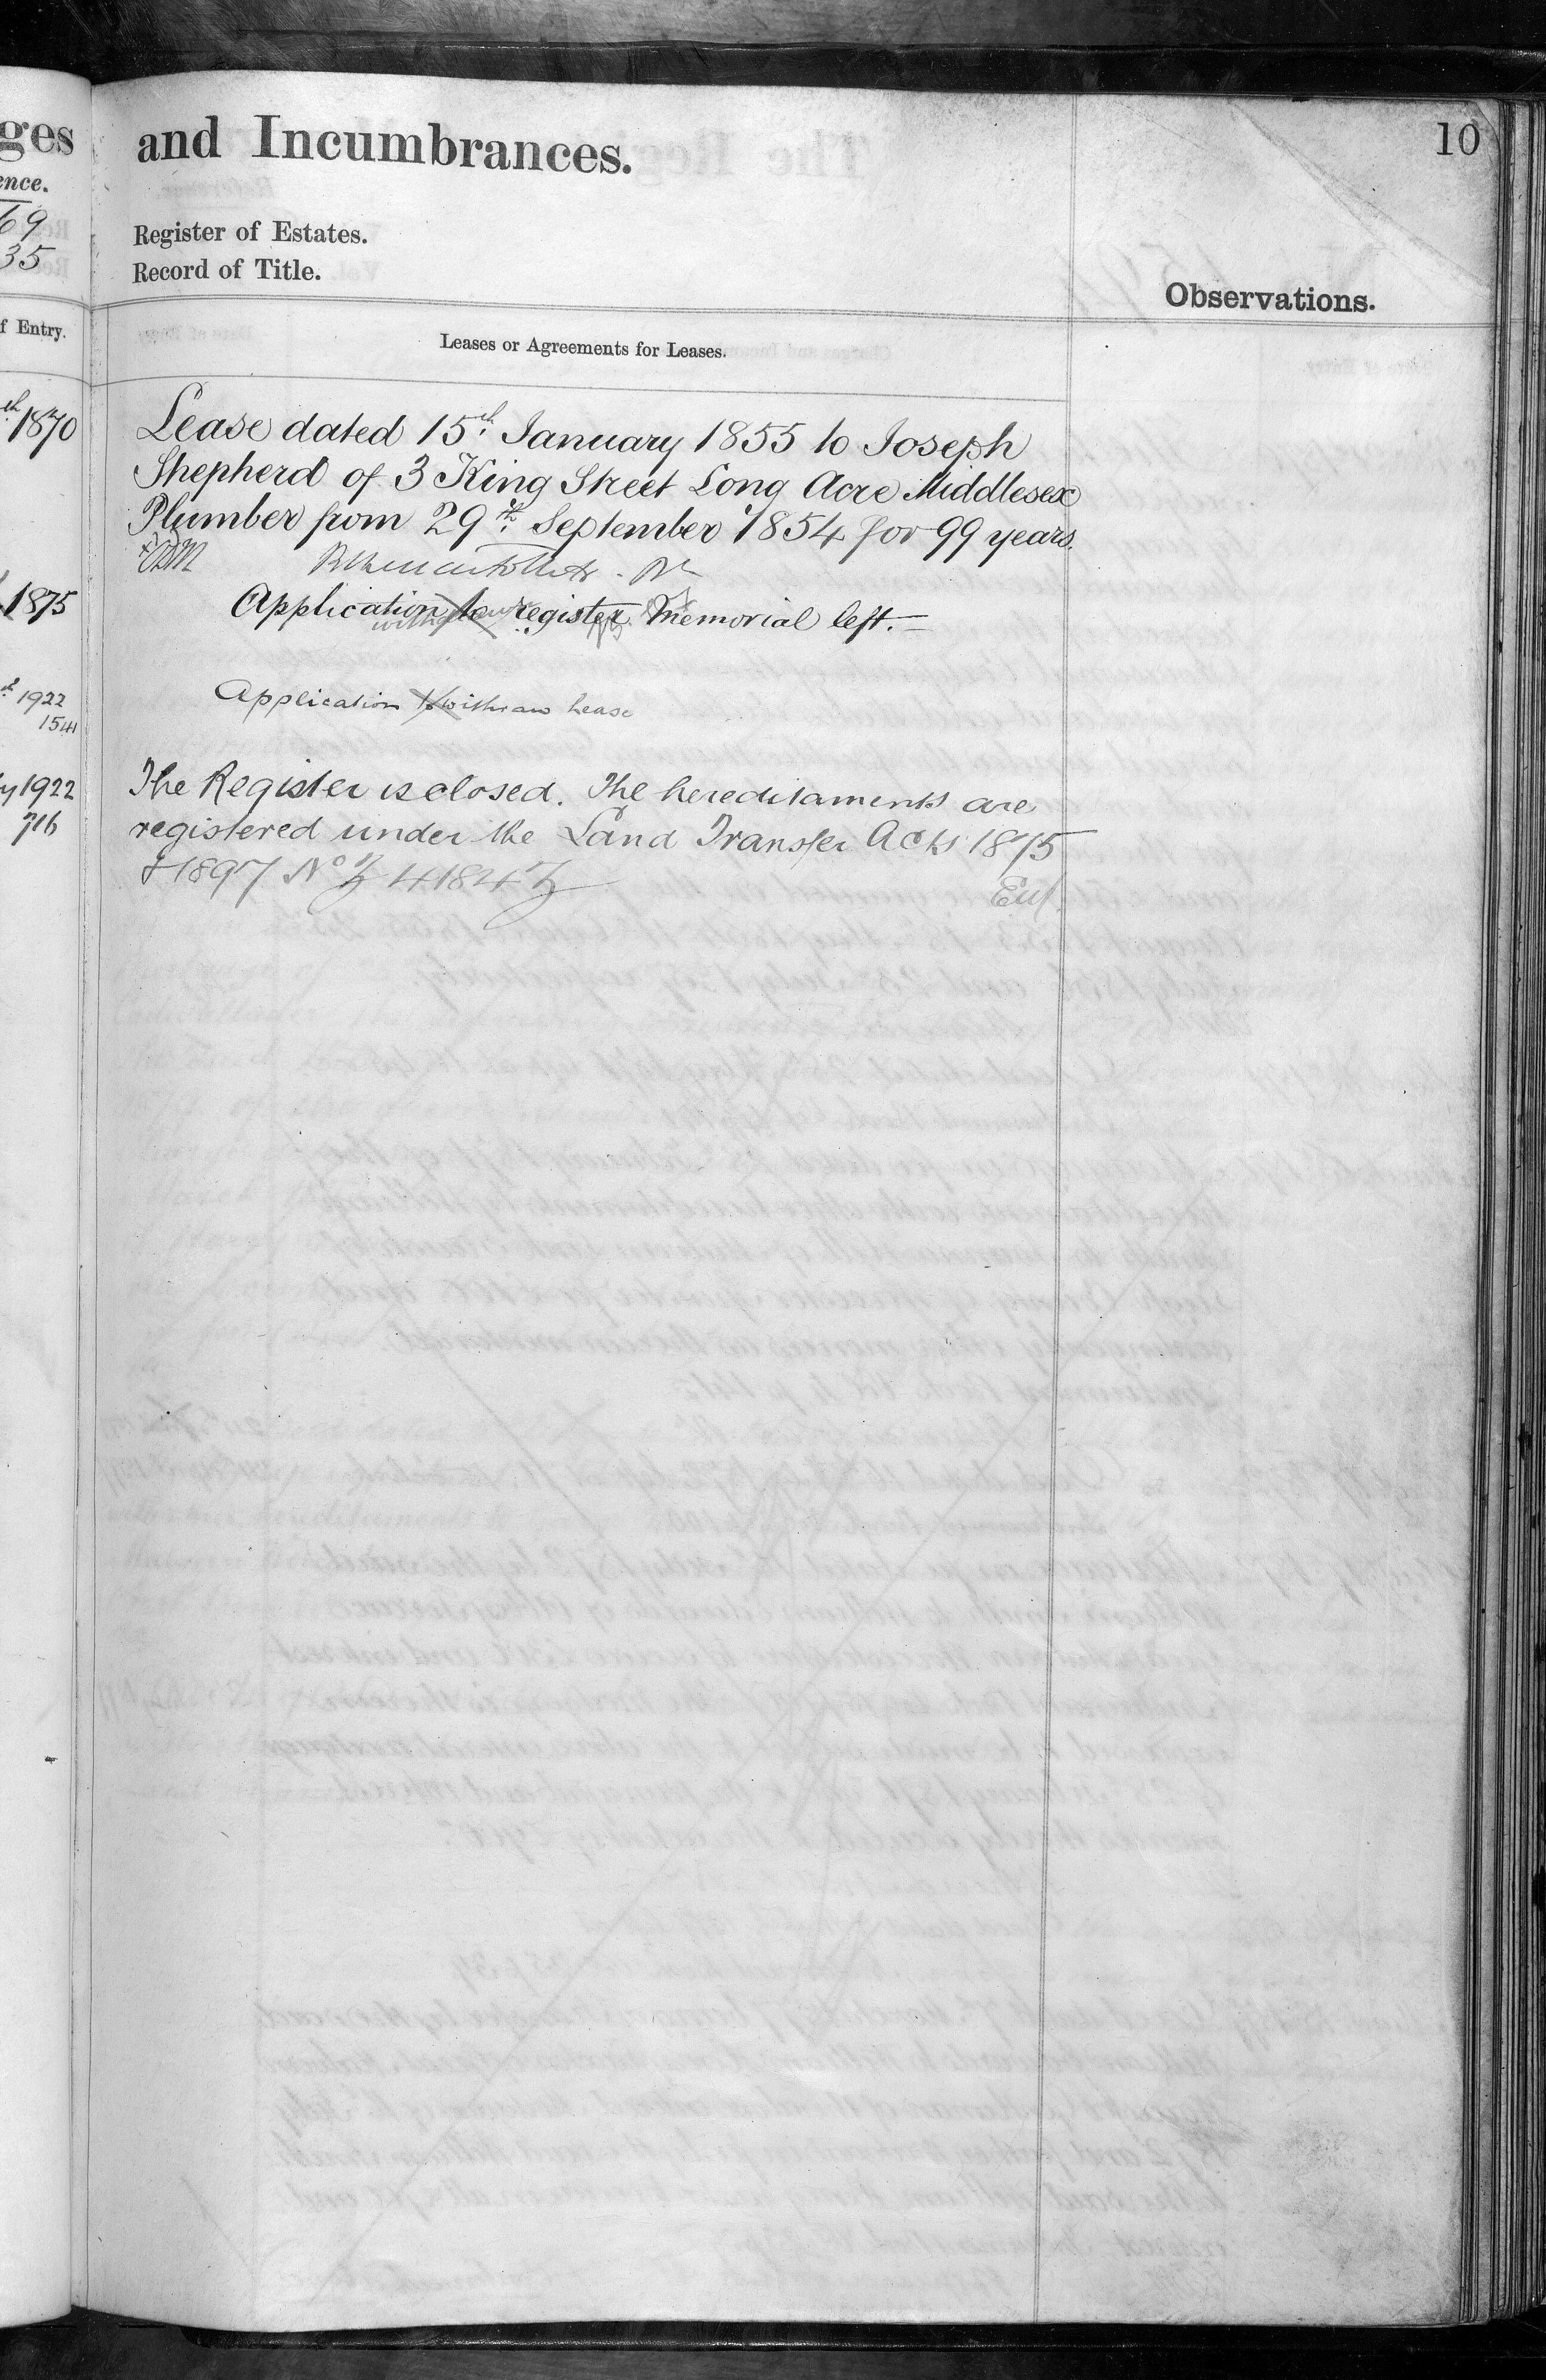 10
ges
and Incumbrances.
ence.
69
35
Register of Estates.
Record of Title.
Observations.
f Entry.
Leases or Agreements for Leases.
th 1870
Lease dated 15th January 1855 to Joseph
Shepherd of 3 King Street Long Acre Middlesex
Plumber from 29th September 1854 for 99 years.
1875
Application to register Memorial left.
1922
1541
Application to withdraw Lease
y 1922
716
The Register is closed. The hereditaments are
registered under the Land Transfer Acts 1875
& 1897 No